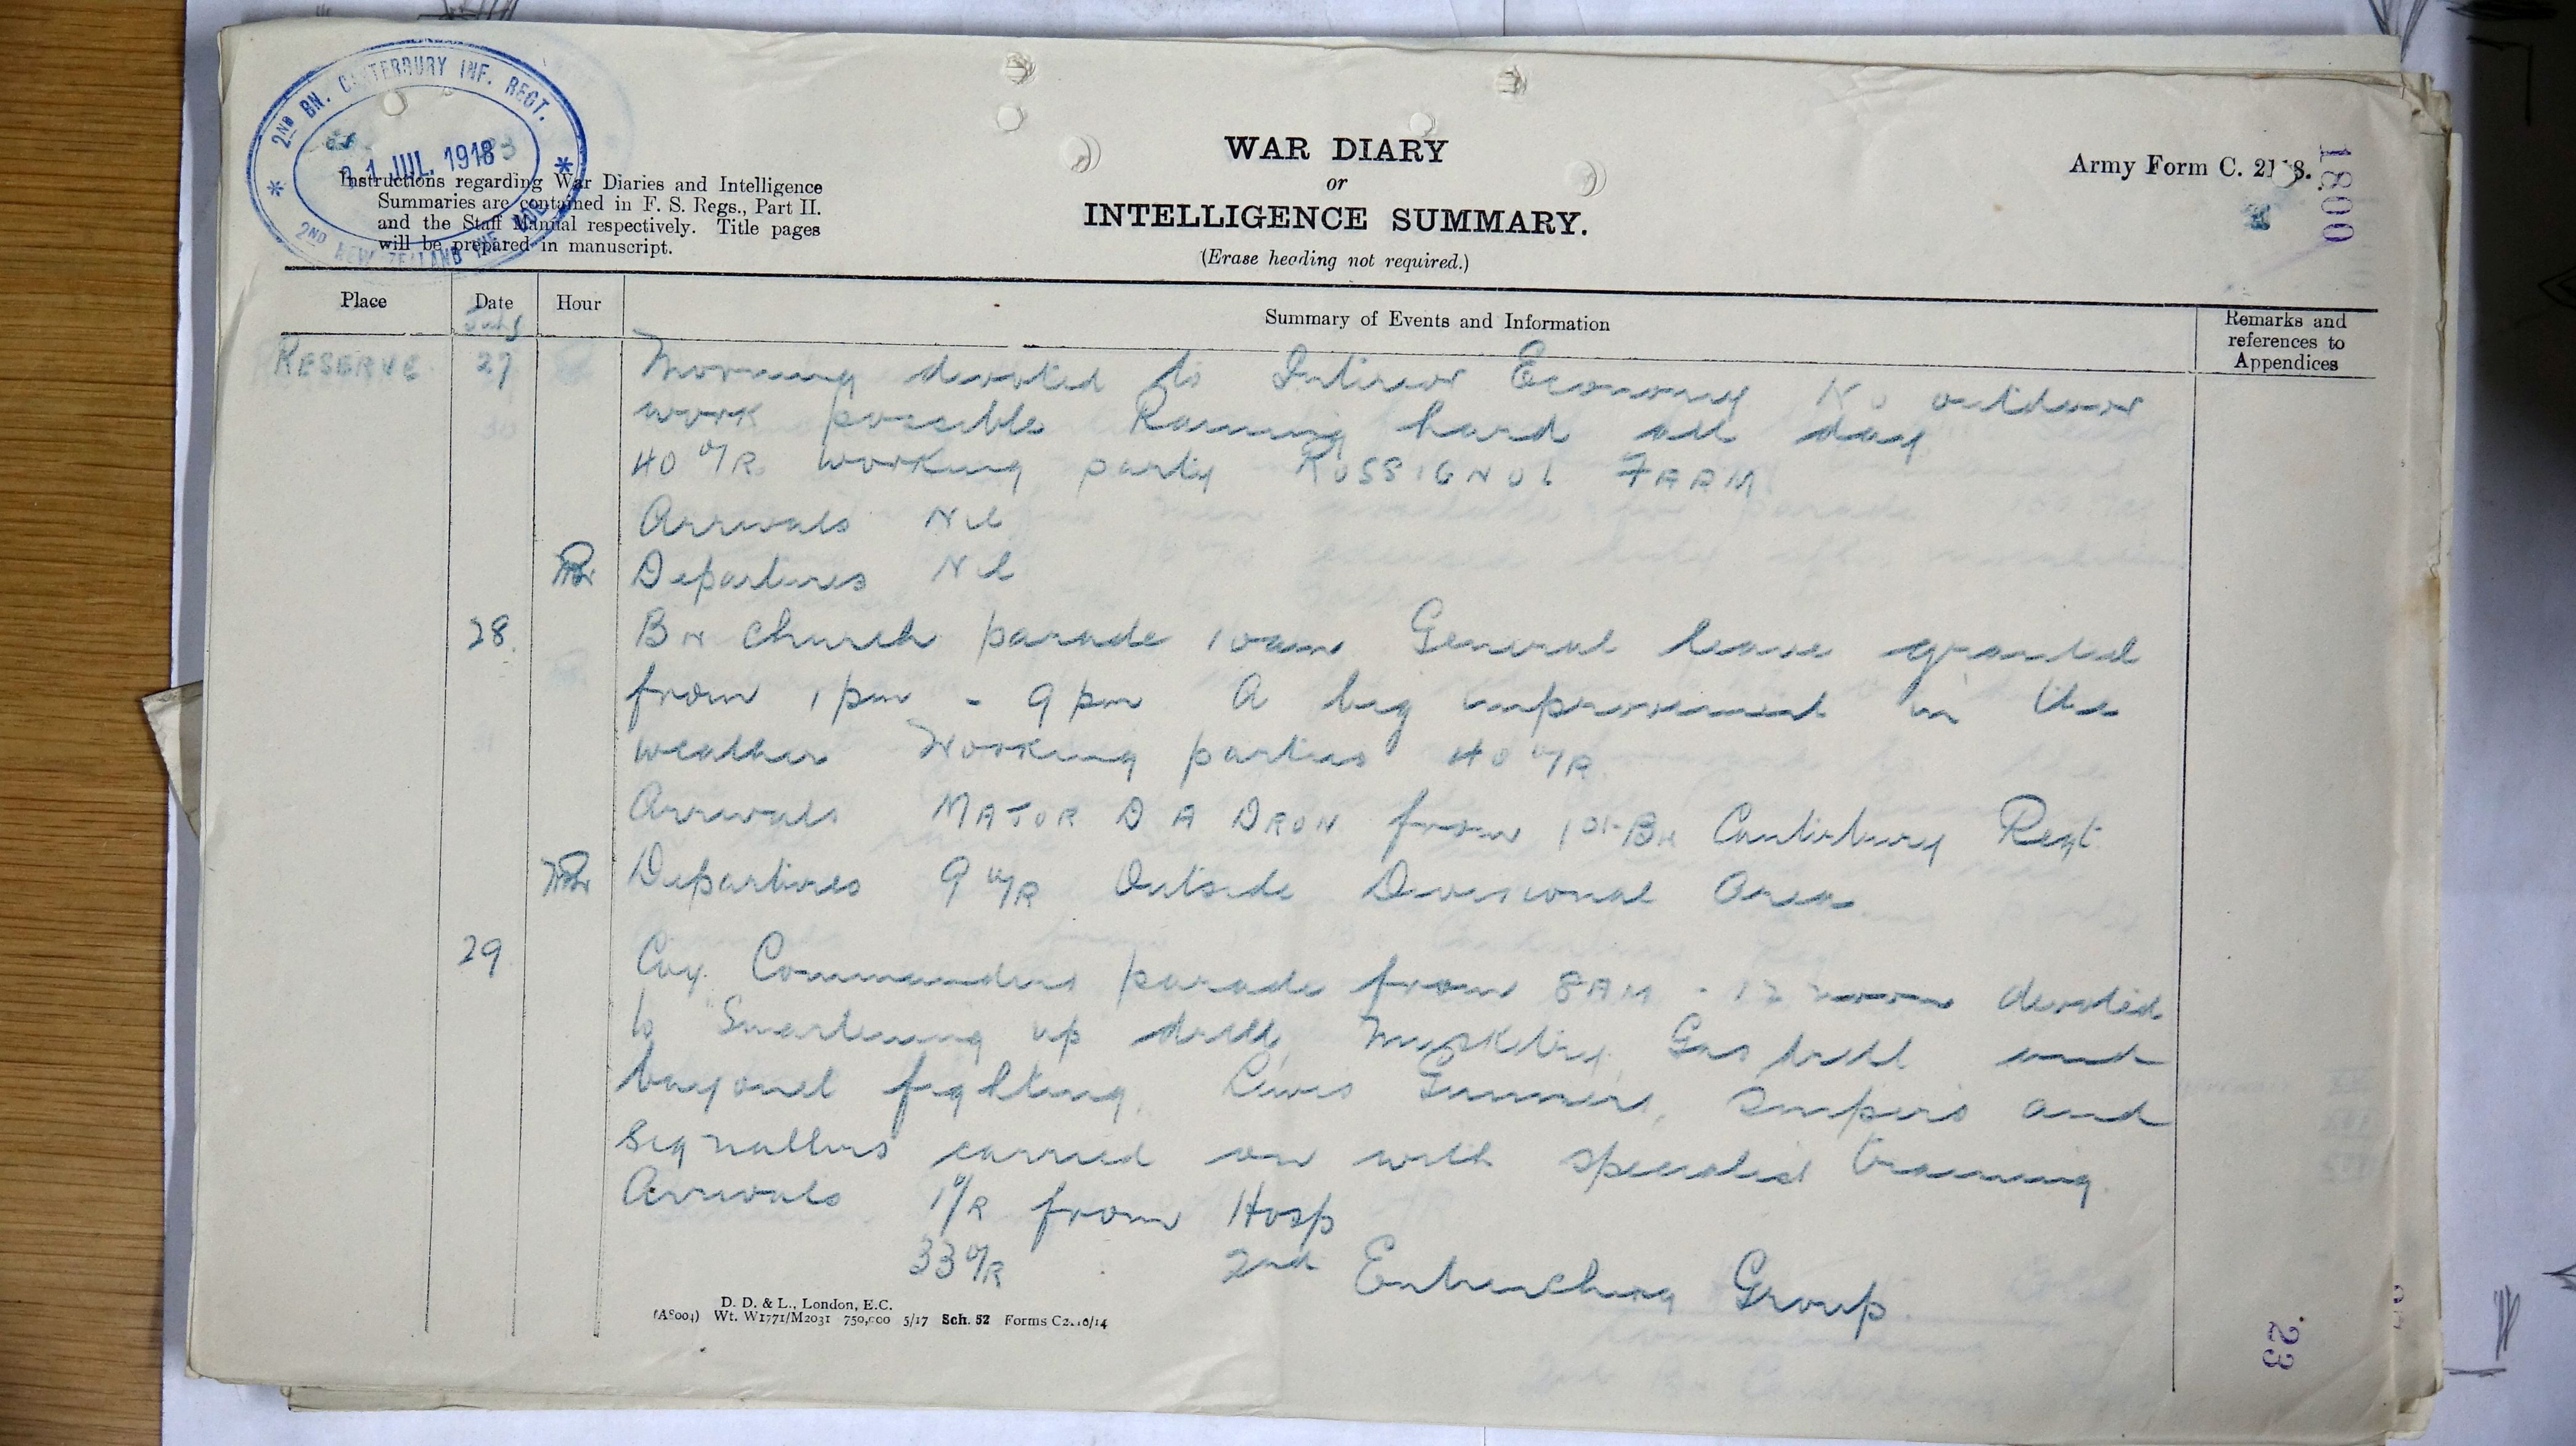 2ND BN. CANTERBURY INF. REGT.
31 JUL. 1918
2ND NEW ZEALAND INF. BDE.
Instructions regarding War Diaries and Intelligence
Summaries are contained in F. S. Regs., Part II.
and the Staff Manual respectively. Title pages
will be prepared in manuscript.
WAR DIARY
or
INTELLIGENCE SUMMARY.
(Erase heading not required.)
Army Form C. 2118.
1800
Place Date Hour Summary of Events and Information Remarks and references to Appendices
July
RESERVE 27 Morning devoted to Interior Economy No outdoor
work possible Raining hard all day
40 O/R working party ROSSIGNOL FARM
Arrivals Nil
Departures Nil
28. BN Church parade 10am General leave granted
from 1pm - 9pm A big improvement in the
weather Working parties 40 O/R
Arrivals MAJOR D A DRON from 1st BN Canterbury Regt.
Departures 9 O/R Outside Divisional Area
29 Coy. Commanders parade from 8AM - 12 noon devoted
to Smartening up drill, Musketry, Gas drill and
bayonet fighting. Lewis Gunners, Snipers and
Signallers carried on with specialist training.
Arrivals 1 O/R from Hosp
33 O/R 2nd Entrenching Group.
D. D. & L., London, E.C.
(A8004) Wt. W1771/M2031 750,000 5/17 Sch. 52 Forms C2118/14
23